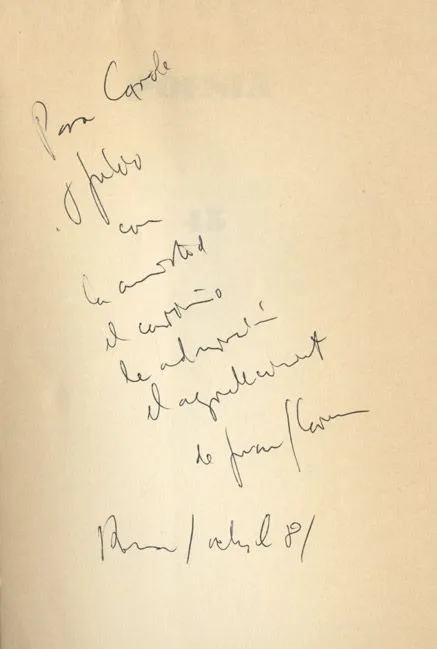 Para Carole
y Julio
con
la amistad
el cariño
la admiración
el agradecimiento
de Juan/
Roma/abril 81